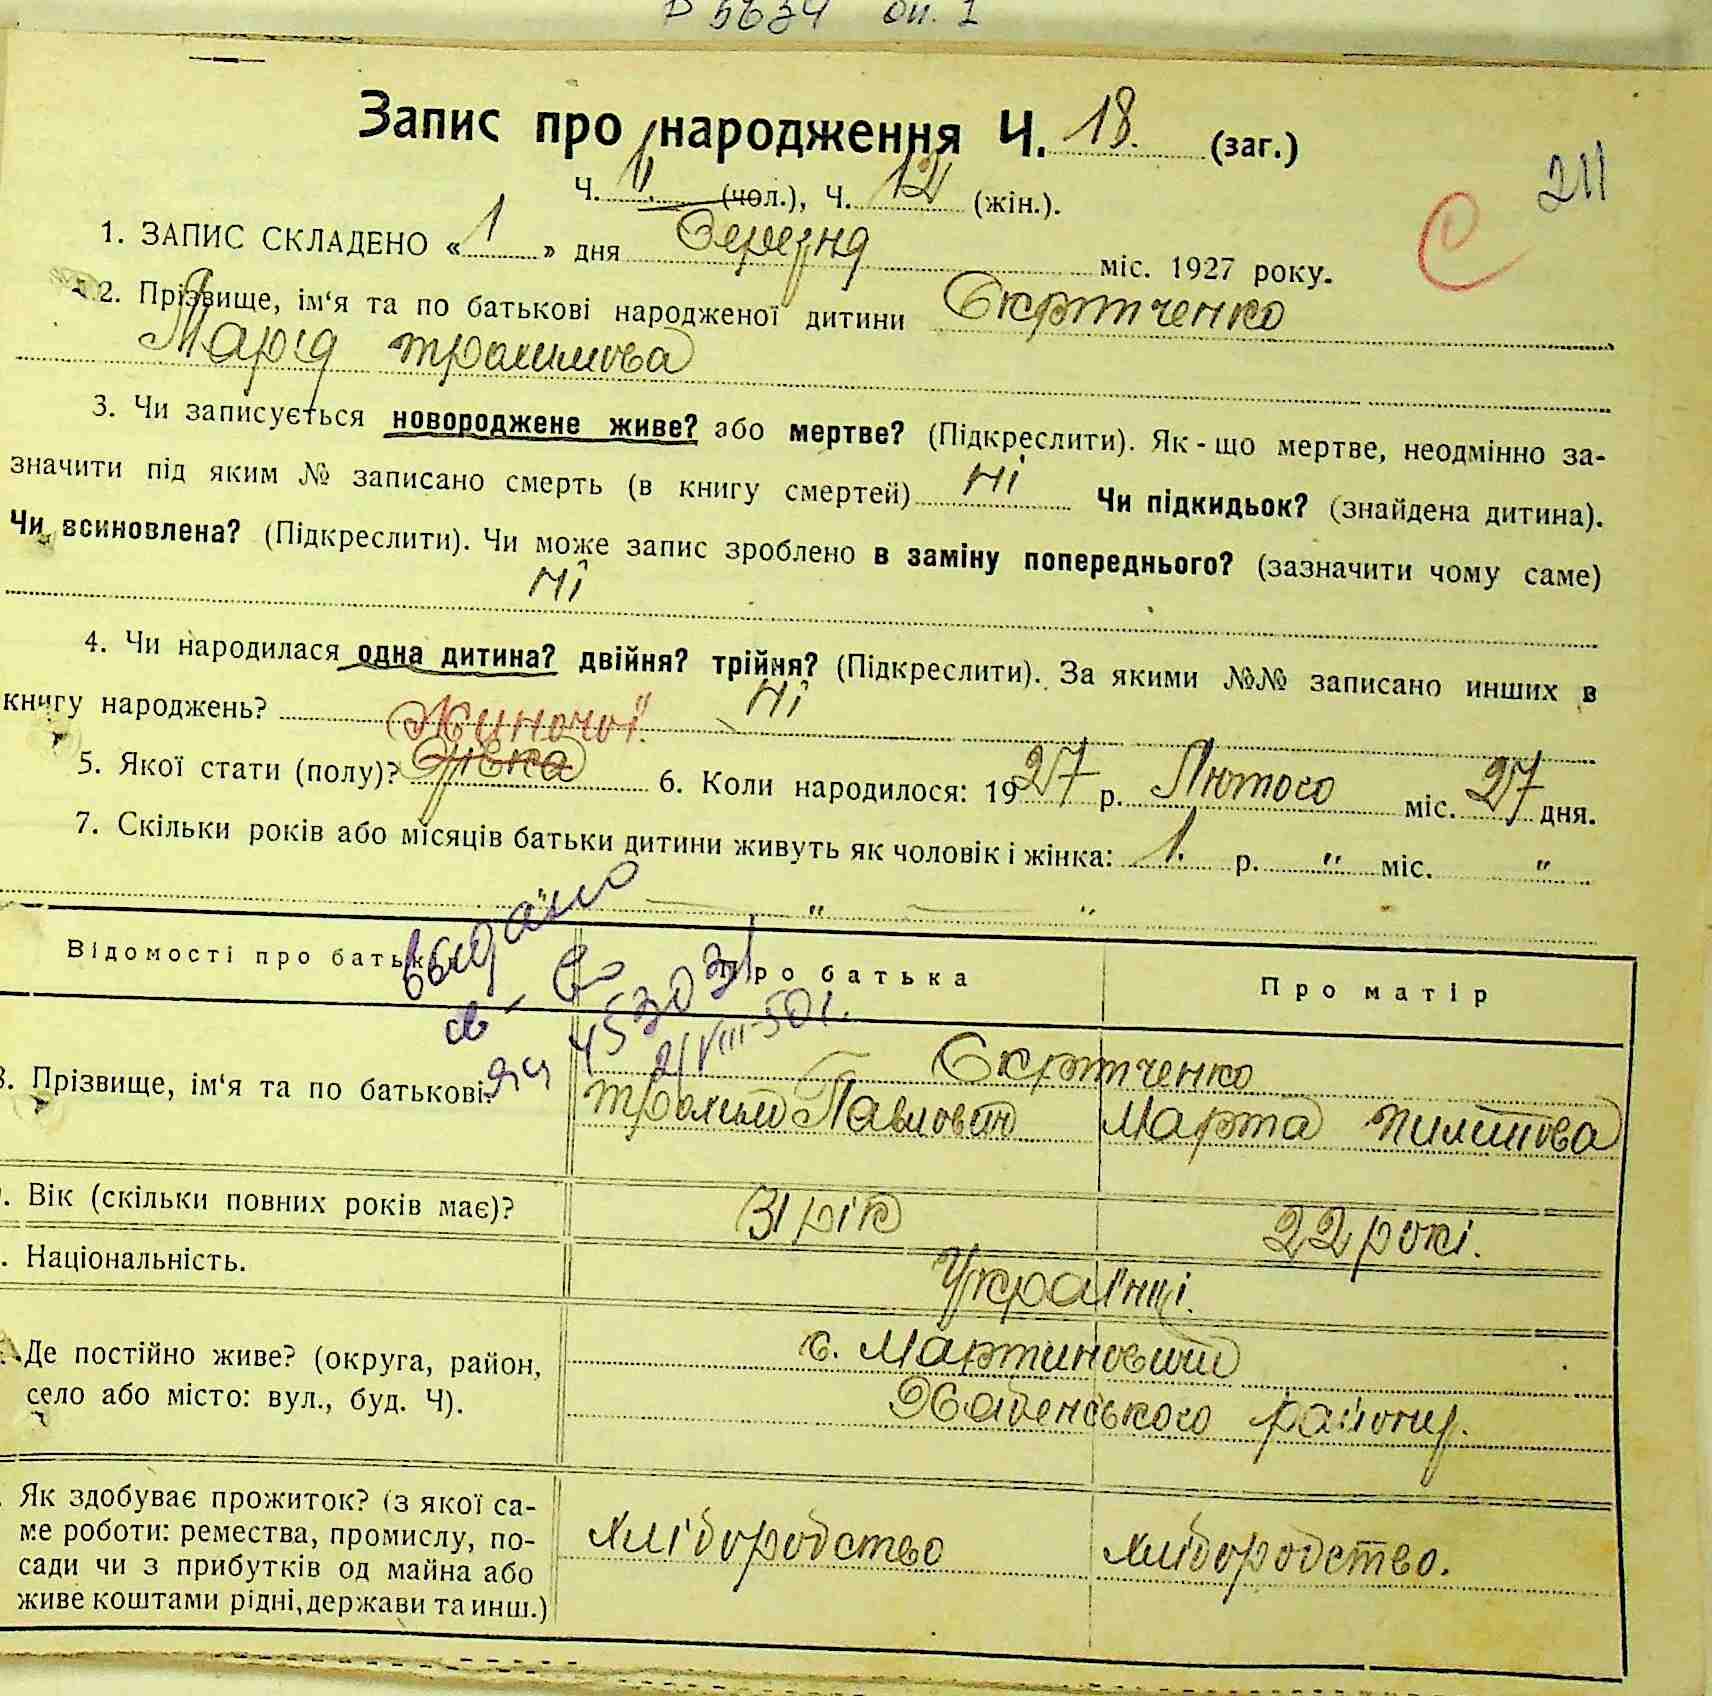 Р 5634 оп. 1
Запис про народження Ч. 18. (заг.)
Ч. (чол.), Ч. 12 (жін.).
211
С
1. ЗАПИС СКЛАДЕНО « 1 » дня Березня міс. 1927 року.
2. Прізвище, ім'я та по батькові народженої дитини
Марія трохимова
3. Чи записується новороджене живе? або мертве? (Підкреслити). Як-що мертве, неодмінно за-
значити під яким № записано смерть (в книгу смертей) Ні Чи підкидьок? (знайдена дитина).
Чи всиновлена? (Підкреслити). Чи може запис зроблено в заміну попереднього? (зазначити чому саме)
Ні
4. Чи народилася одна дитина? двійня? трійня? (Підкреслити). За якими №№ записано инших в
книгу народжень? Ні
Жиночоі.
5. Якої стати (полу)? 6. Коли народилося: 1927 р. Лютого міс. 27 дня.
7. Скільки років або місяців батьки дитини живуть як чоловік і жінка: 1. р. " міс. "
" "
выдано
св-во
45303
2/VIII-50г.
Відомості про батьк Про батька Про матір
8. Прізвище, ім'я та по батькові.
Трохим Павлович Марта пилипова
. Вік (скільки повних років має)? 31 рік 22 рокі.
. Національність. Українці.
Де постійно живе? (округа, район, с. Мартиновичи
село або місто: вул., буд. Ч). Хабенського району.
Як здобуває прожиток? (з якої са-
ме роботи: ремества, промислу, по- хліборобство хліборобство.
сади чи з прибутків од майна або
живе коштами рідні, держави та инш.)